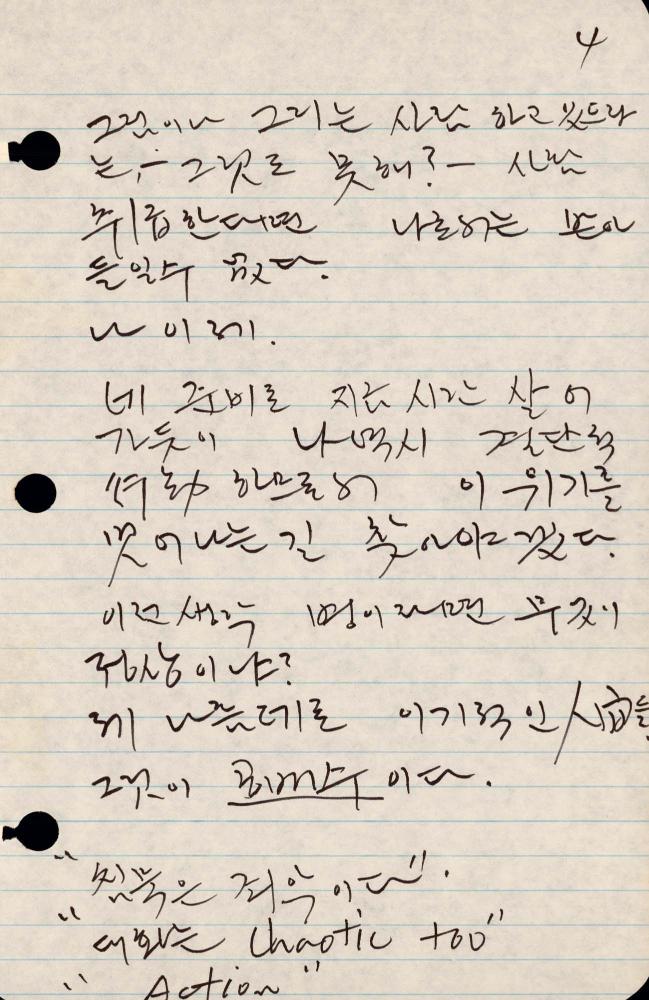 4
그림이나 그리는 사람 하고 있드라
는, — 그것도 못해? — 사람
취급 한다면 나로서는 받아
들일수 없다.
나 이제.
네 준비로 지금 시간 살어
가듯이 나 역시 결단적
하므로서 이 위기를
벗어나는 길 찾아야 겠다.
이런 생각 이라면 무것이
정상이냐?
제 나름데로 이기적인
그것이 이다.
"침묵은 죄악이다".
"대화는 Chaotic too"
"Action"